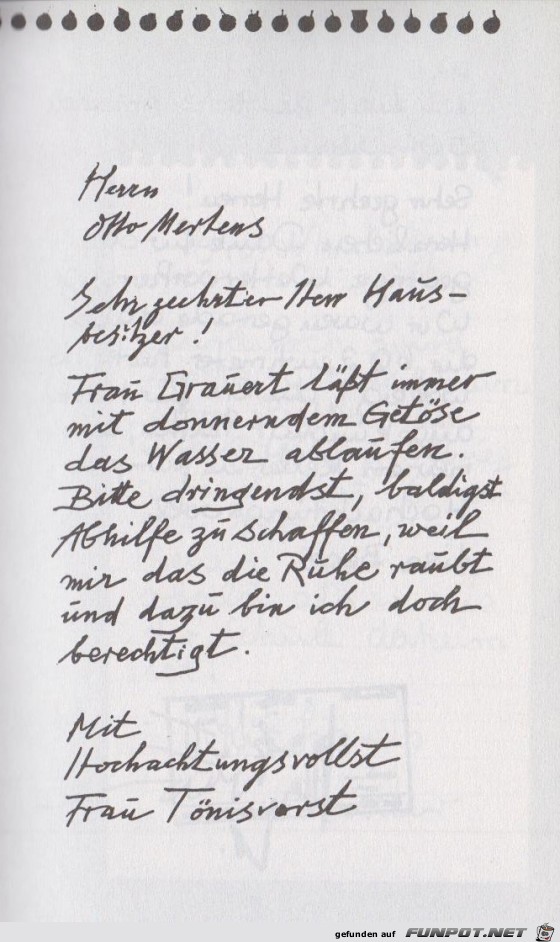 Herrn
Otto Mertens
Sehr geehrter Herr Haus-
besitzer!
Frau Grauert läßt immer
mit donnerndem Getöse
das Wasser ablaufen.
Bitte dringendst, baldigst
Abhilfe zu schaffen, weil
mir das die Ruhe raubt
und dazu bin ich doch
berechtigt.
Mit
Hochachtungsvollst
Frau Tönisvorst
gefunden auf FUNPOT.NET